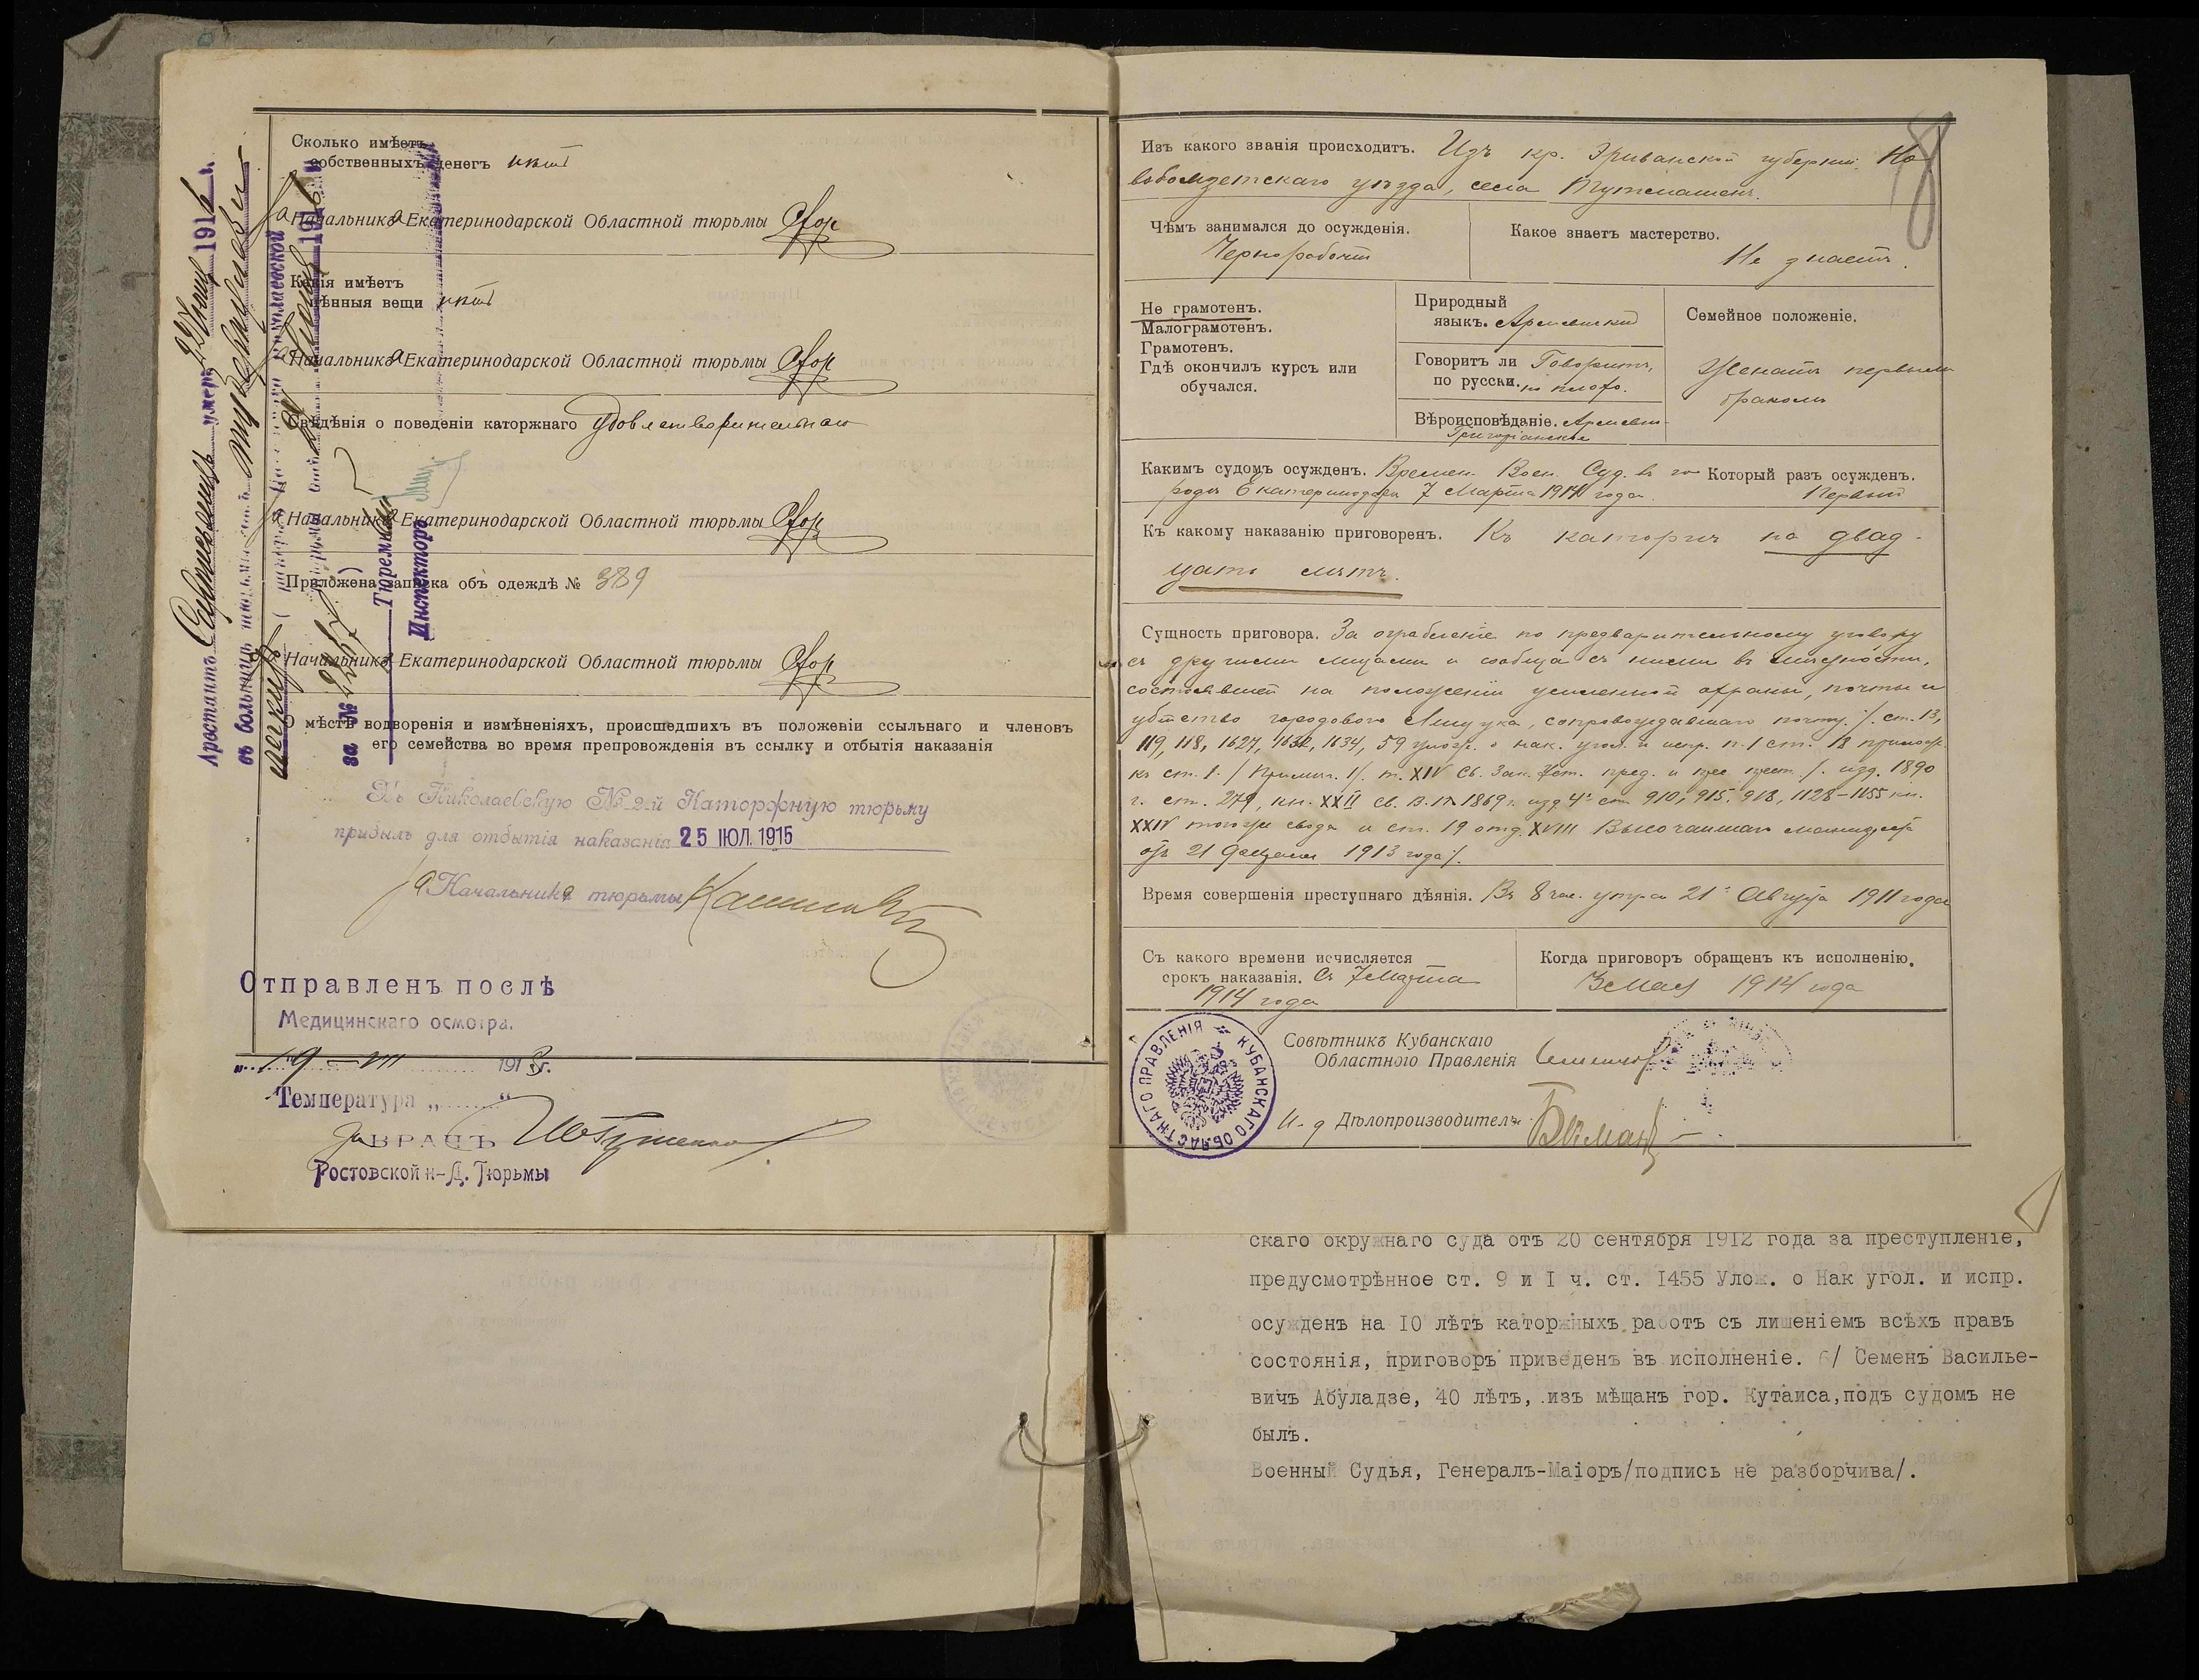 Сколько имѣетъ
собственныхъ денегъ нѣтъ
За Начальника Екатеринодарской Областной тюрьмы
Какія имѣетъ
цѣнныя вещи нѣтъ
За Начальника Екатеринодарской Областной тюрьмы
Свѣдѣнія о поведеніи каторжнаго удовлетворительное
За Начальника Екатеринодарской Областной тюрьмы
Приложена записка объ одеждѣ № 389
За Начальника Екатеринодарской Областной тюрьмы
О мѣстѣ водворенія и измѣненіяхъ, происшедшихъ въ положеніи ссыльнаго и членовъ
его семейства во время препровожденія въ ссылку и отбытія наказанія
Въ Николаевскую № 2-й Каторжную тюрьму
прибылъ для отбытія наказанія 25 ІЮЛ. 1915
За Начальника тюрьмы
Отправленъ послѣ
Медицинскаго осмотра.
„19 - VII 191 г.
Температура „ “
За ВРАЧЪ
Ростовской н-Д. Тюрьмы
Арестантъ умеръ 22 1916 г.
въ больницѣ отъ туберкулеза
легкихъ Николаевской
1916
за № 2257)
Тюремный
Инспекторъ
18
Изъ какого званія происходитъ. Изъ кр. Эриванской губерніи. Но
вобаязетскаго уѣзда, села
Чѣмъ занимался до осужденія.
Чернорабочій
Какое знаетъ мастерство.
Не знаетъ.
Не грамотенъ.
Малограмотенъ.
Грамотенъ.
Гдѣ окончилъ курсъ или
обучался.
Природный
языкъ. Армянскій
Говоритъ ли Говоритъ,
по русски. но плохо.
Вѣроисповѣданіе. Армяно-
Григоріанское
Семейное положеніе.
Женатъ первымъ
бракомъ
Какимъ судомъ осужденъ. Времен. Воен. Суд. въ го
родѣ Екатеринодарѣ 7 Марта 1914 года.
Который разъ осужденъ.
Первый
Къ какому наказанію приговоренъ. Къ каторгѣ на двад-
цать лѣтъ.
Сущность приговора. За ограбленіе по предварительному уговору
съ другими лицами и сообща съ ними въ мѣстности,
состоявшей на положеніи усиленной охраны, почты и
убійство городового сопровождавшаго почту. /. ст. 13,
119, 118, 1627, 1632, 1634, 59 улож. о нак. угол. и испр. п. 1 ст. 18 прилож.
къ ст. 1. / Примѣч. 1/. т. XIV Св. Зак. Уст. пред. и прес. прест. /. изд. 1890
г. ст. 279, кн. XXII Св. В. П. 1869 г. изд. 4е ст. 910, 915, 918, 1128-1155 кн.
XXIV того же свода и ст. 19 отд. XVIII Высочайшаго манифеста
отъ 21 февраля 1913 года /.
Время совершенія преступнаго дѣянія. Въ 8 час. утра 21го Августа 1911 года
Съ какого времени исчисляется
срокъ наказанія. Съ 7 Марта
1914 года
Когда приговоръ обращенъ къ исполненію.
3 Мая 1914 года
Совѣтникъ Кубанскаго
Областного Правленія
И. д. Дѣлопроизводитель
КУБАНСКАГО ОБЛАСТНАГО ПРАВЛЕНІЯ
скаго окружнаго суда отъ 20 сентября 1912 года за преступленіе,
предусмотрѣнное ст. 9 и I ч. ст. 1455 Улож. о Нак угол. и испр.
осужденъ на 10 лѣтъ каторжныхъ работъ съ лишеніемъ всѣхъ правъ
состоянія, приговоръ приведенъ въ исполненіе. 6/ Семенъ Василье-
вичъ Абуладзе, 40 лѣтъ, изъ мѣщанъ гор. Кутаиса,подъ судомъ не
былъ.
Военный Судья, Генералъ-Маіоръ/подпись не разборчива/.